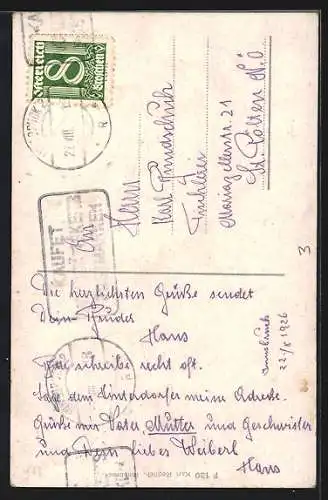 Österreich
8
Groschen
An
Herrn
Karl
Tischler
Mariazellerstr. 21
St. Pölten N.Ö.
KAUFET
MARKEN
Die herzlichsten Grüße sendet
Dein Bruder
Hans
Bitte schreibe recht oft.
Sage dem Hinterdorfer meine Adresse.
Grüße mir Vater Mutter und Geschwister
und Dein liebes Weiberl
Hans
Innsbruck
22/X 1926
3